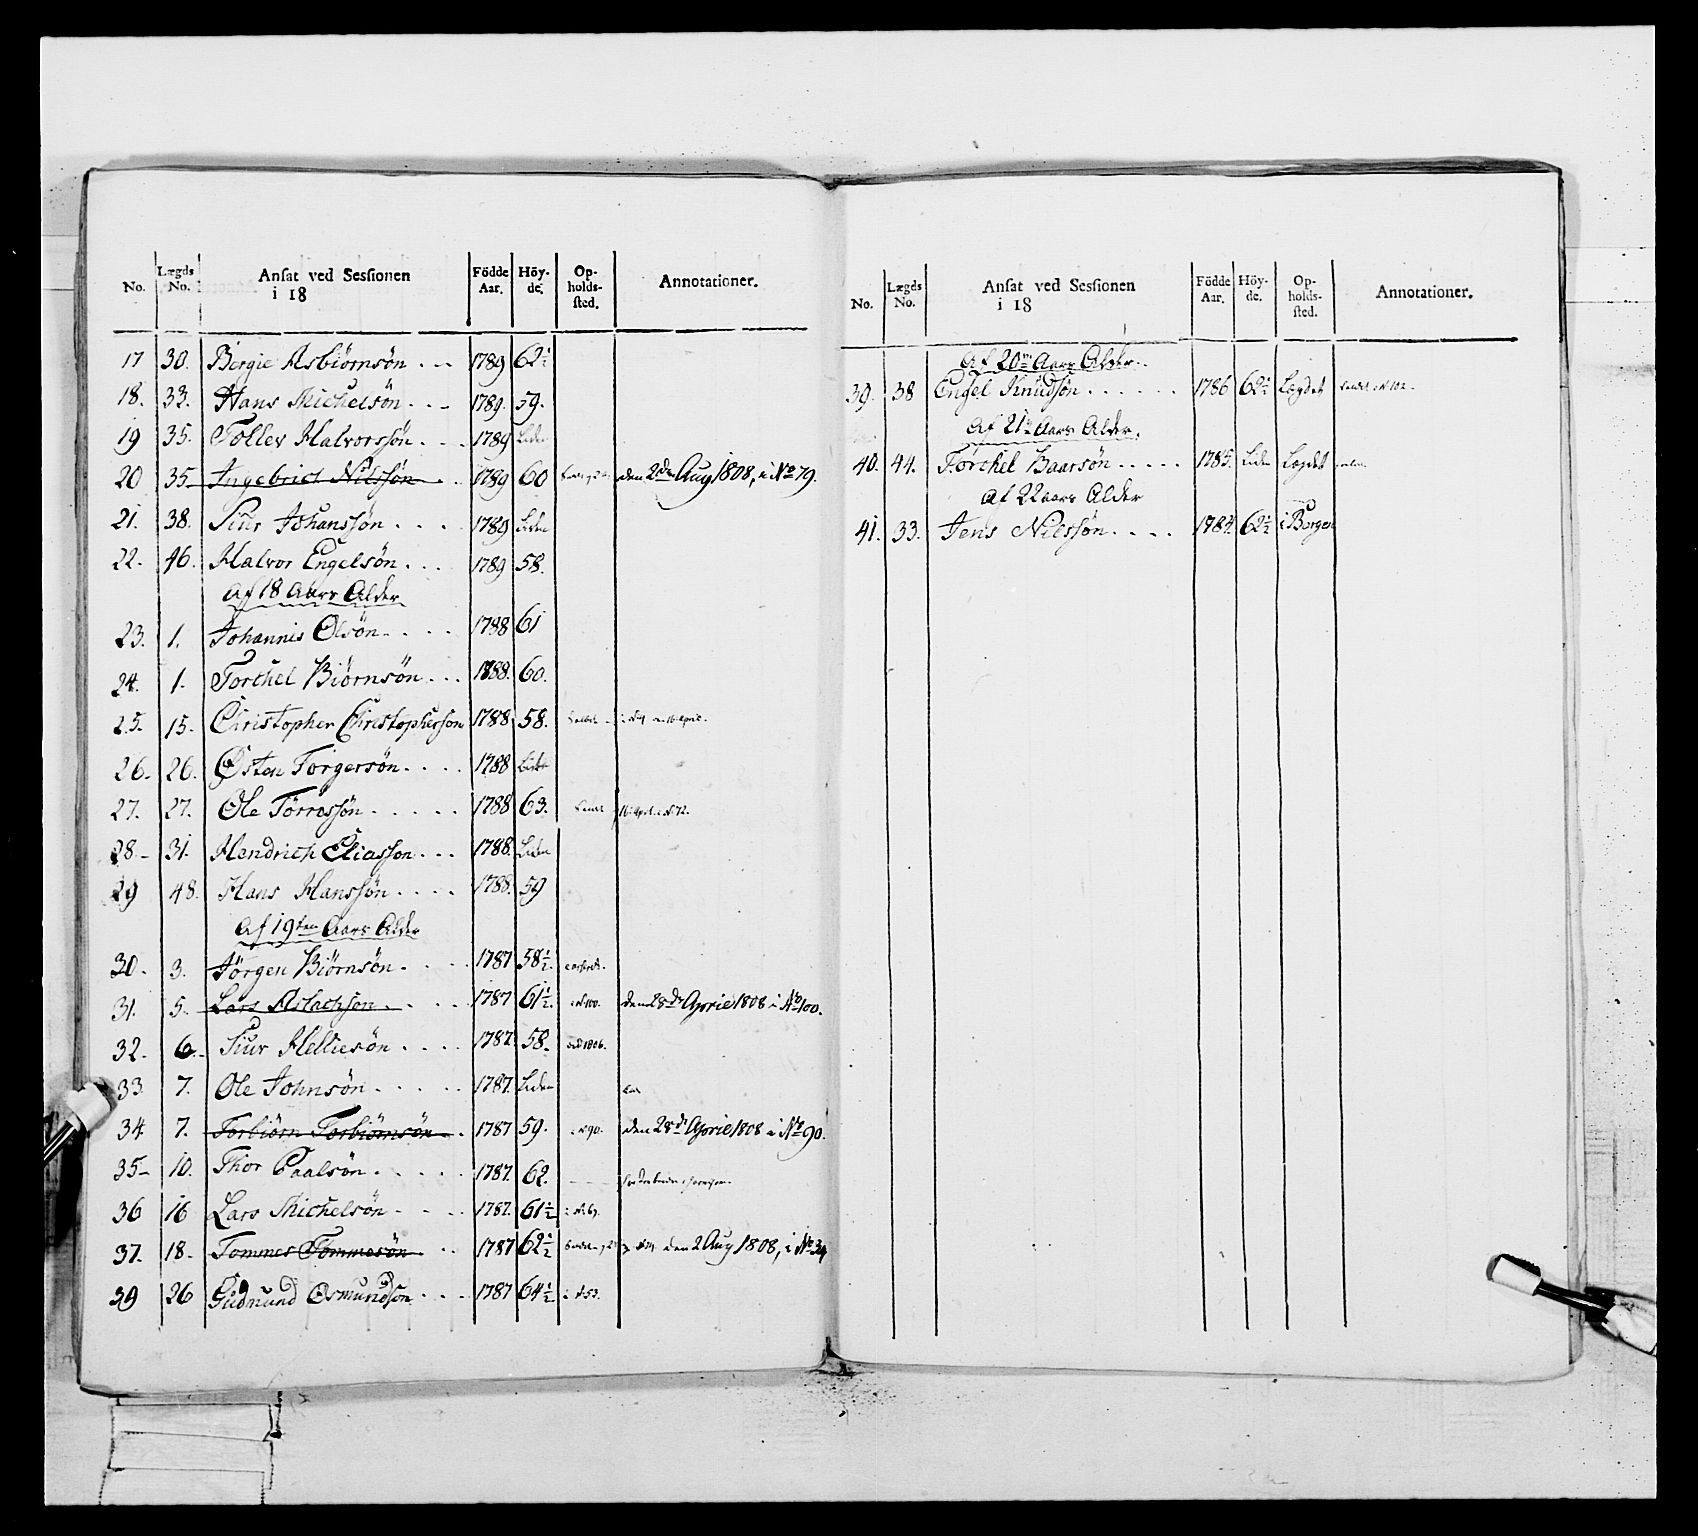 No. Lægds No. Ansat ved Sessionen i 18 Födde Aar. Höyde. Opholdssted. Annotationer.
17 30. Bergie Asbiörnsön 1789 62½
18. 33. Hans Michelsön 1789. 59.
19 35. Tollev Halvorssön 1789 Liden
20 35 Ingebrict Nilssön 1789 60 den 2den Aug 1808, i No 79.
21. 38. Siur Johanssön 1789 Liden
22. 46. Halvor Engelsön 1789 58.
Af 18 Aars Alder
23. 1. Johannis Olsön 1788 61
24. 1. Torchel Biörnsön 1788. 60.
25. 15. Christopher Christophersøn 1788. 58. 16 April.
26. 26. Östen Torgersön 1788 Liden
27. 27. Ole Törressön 1788 63. 16 April i No 72.
28 31. Hendrich Eliassøn 1788. Liden
29 48. Hans Hanssön 1788. 59
Af 19ten Aars Alder
30. 3. Jörgen Biörnsön 1787 58½
31. 5. Lars Aslachsøn 1787 61½ i No 100. den 28de Aprie 1808 i No 100.
32. 6. Siur Helliesön 1787. 58. 1806.
33 7. Ole Johnsön 1787. Liden
34 7. Torbiörn Torbiörnsön 1787 59. i No 90. den 28de Aprie 1808 i No 90.
35 10. Thor Paalsön 1787. 62.
36 16 Lars Michelsön 1787. 61½
37. 18. Tommes Tommesön 1787 62½ den 2 Aug 1808, i No 34
39 26 Gudnund Osmundsøn 1787 64½ i No 53.
No. Lægds No. Ansat ved Sessionen i 18 Födde Aar. Höyde. Opholdssted. Annotationer.
Af 20de Aars Alder
39. 38 Engel Knudsön 1786 62½ Lægdet
Af 21de Aars Alder.
40. 44. Torchel Baarsön 1785. Liden Lægdet
Af 22 aars Alder
41. 33. Jens Nilssön 1784. 62½ i Bergen